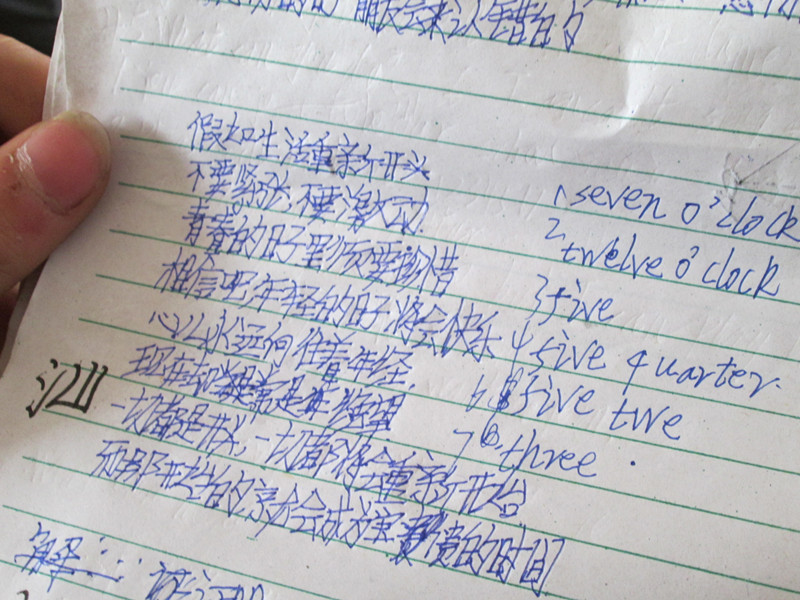 朋友会来认错的
假如生活重新开头
不要紧张,不要激动.
青春的日子里须要珍惜
相信吧年轻的日子将会快乐
心儿永远向往着年轻.
现在却
一切都是开头,一切都将会重新开始
而那开始的会成宝贵的时间
解:
1 seven o'clock
2 twelve o'clock
3 five
4 five quarter.
6 five twe
7 three.